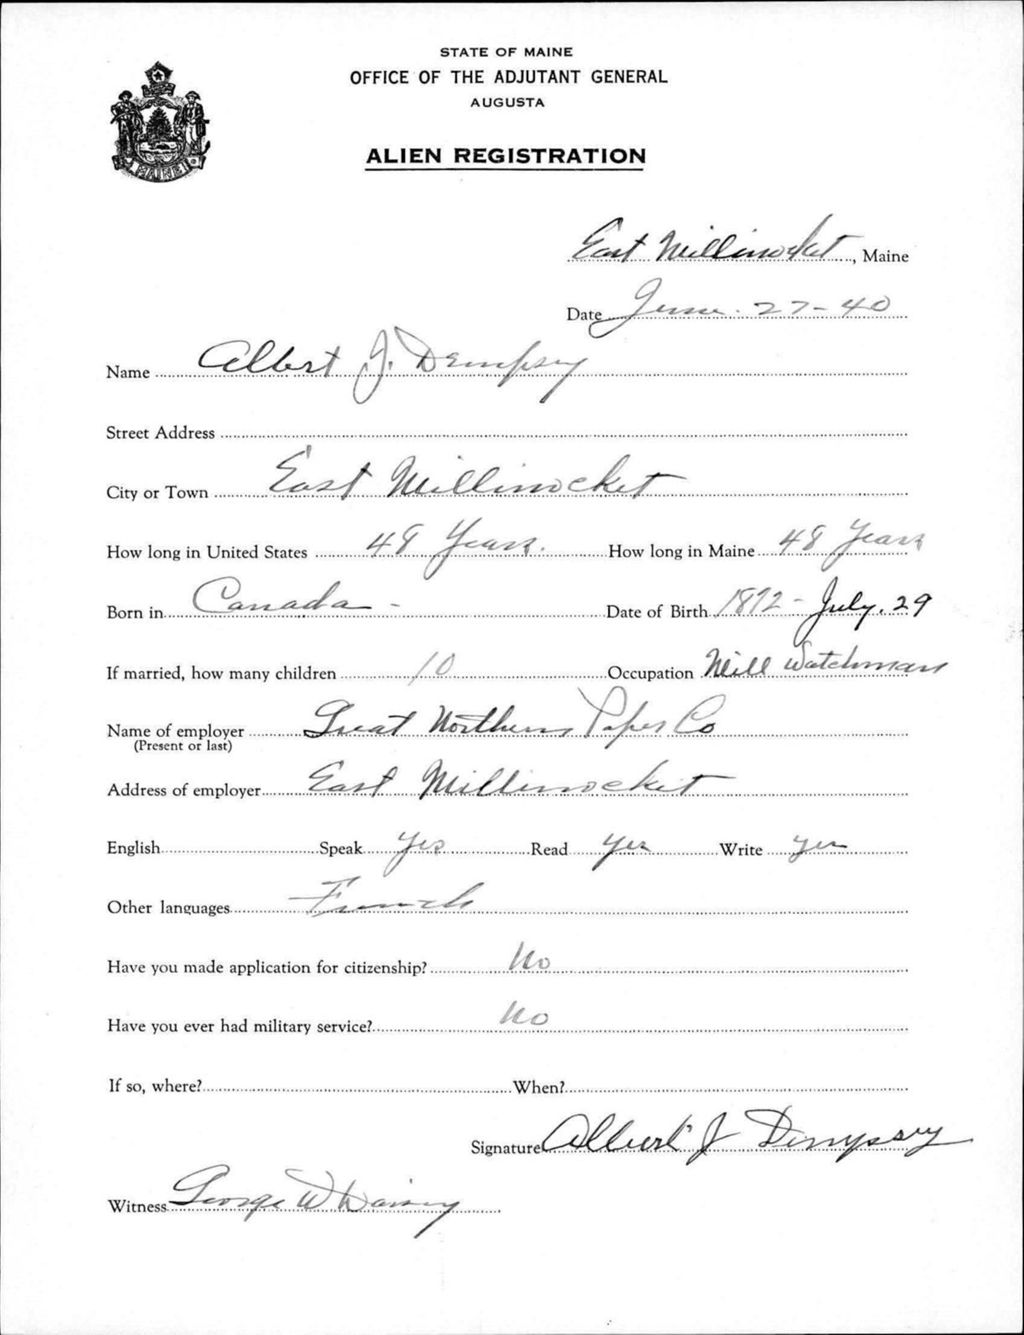 STATE OF MAINE
OFFICE OF THE ADJUTANT GENERAL
AUGUSTA
ALIEN REGISTRATION
MAINE
East Millinocket, Maine
Date June. 27-40
Name Albert J. Dempsey
Street Address
City or Town East Millinocket
How long in United States 48 Years. How long in Maine 48 Years
Born in Canada - Date of Birth July. 29
If married, how many children 10 Occupation Mill Watchman
Name of employer Great Northern Paper Co
(Present or last)
Address of employer East Millinocket
English Speak Yes Read Yes Write Yes
Other languages French
Have you made application for citizenship? No
Have you ever had military service? No
If so, where? When?
Signature Albert J Dempsey
Witness George W